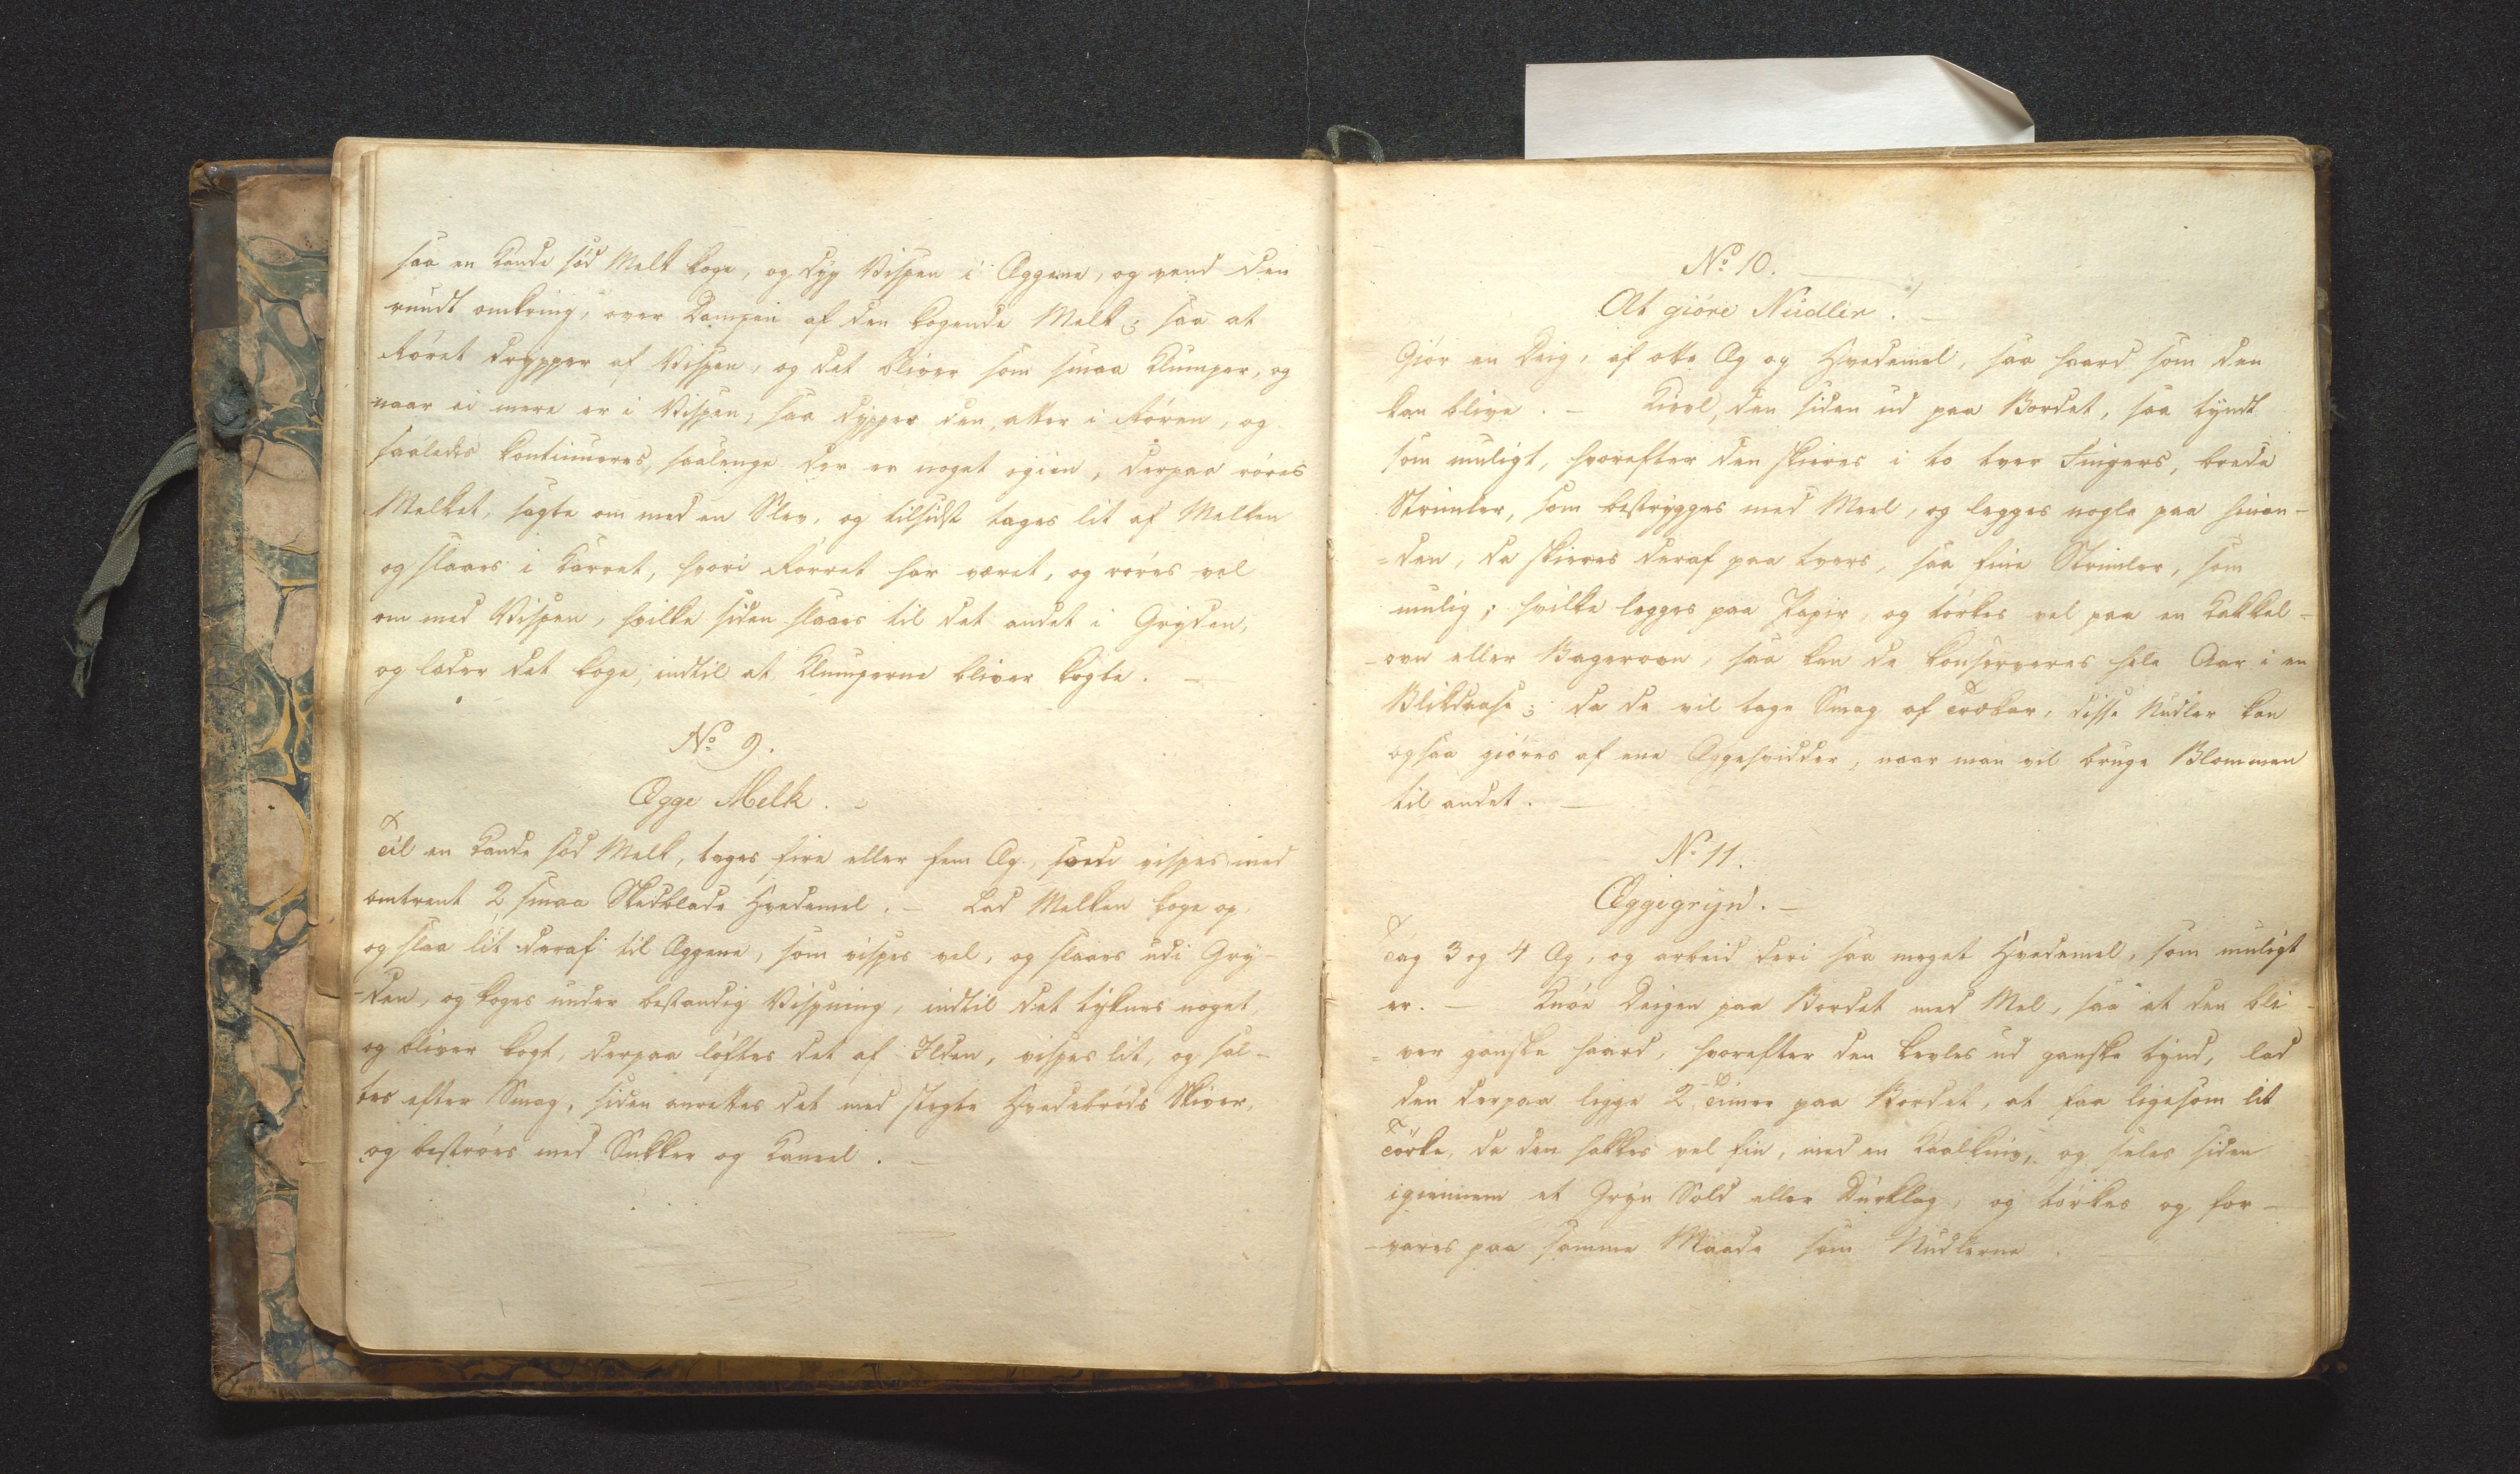 saa en Kande sød Melk koge, og dyp Vispen i Æggene, og vend den
rundt omkring, over Dampen af den kogende Melk; saa at
Røret drypper af Vispen, og det bliver som smaa Klumper, og
naar ei mere er i Vispen, saa dyppes den atter i Røren, og
saaledes kontinueres, saalenge der er noget igien, derpaa røres
Melket, sagte om med en Slev, og tilsidst tages lit af Melken
og slaaes i Karret, hvori Rørret har været, og røres vel
om med Vispen, hvilke siden slaaes til det andet i Gryden,
og lader det koge, indtil at Klumperne bliver kogte. —
No 9.
Ægge Melk.
Til en Kande sød Melk, tages fire eller fem Æg, som vispes med
omtrent 2 smaa Skedblade Hvedemel. — Lad Melken koge op,
og slaa lit deraf til Æggene, som vispes vel, og slaaes udi Gry-
-den, og koges under bestandig Vispning, indtil det tyknes noget,
og bliver kogt, derpaa løftes det af Ilden, vispes lit, og sal-
tes efter Smag, siden anrettes det med stegte Hvedebrøds Skiver,
og bestrøes med Sukker og Kaneel. —
No 10.
At giöre Nudler. —
Giör en Deig, af otte Æg og Hvedemel, saa haard som den
kan blive. — Kievl, den siden ud paa Bordet, saa tyndt
som muligt, hvorefter den skieres i to tver Fingers, brede
Strimler, som bestrygges med Meel, og legges nogle paa hinan-
=den, da skieres deraf paa tvers, saa fine Strimler, som
mulig; hvilke legges paa Papir, og törkes vel paa en Kakkel-
-ovn eller Bagerovn, saa kan de konserveres hele Aar i en
Blikdaase; da de vil tage Smag af Trækar, disse Nudler kan
ogsaa giöres af ene Æggehvidder, naar man vil bruge Blommen
til andet. —
No 11.
Æggegryn. —
Tag 3 og 4 Æg, og arbeid deri saa meget Hvedemel, som muligt
er. — Knöe Deigen paa Bordet med Mel, saa at den bli-
=ver ganske haard, hvorefter den kevles ud ganske tynd, lad
den derpaa ligge 2 Timer paa Bordet, at faa ligesom lit
Törke, da den hakkes vel fin, med en Kaalkniv, og seles siden
igiennem et Gryn Sold eller Dörklag, og törkes og for-
-vares paa samme Maade som Nudlerne.